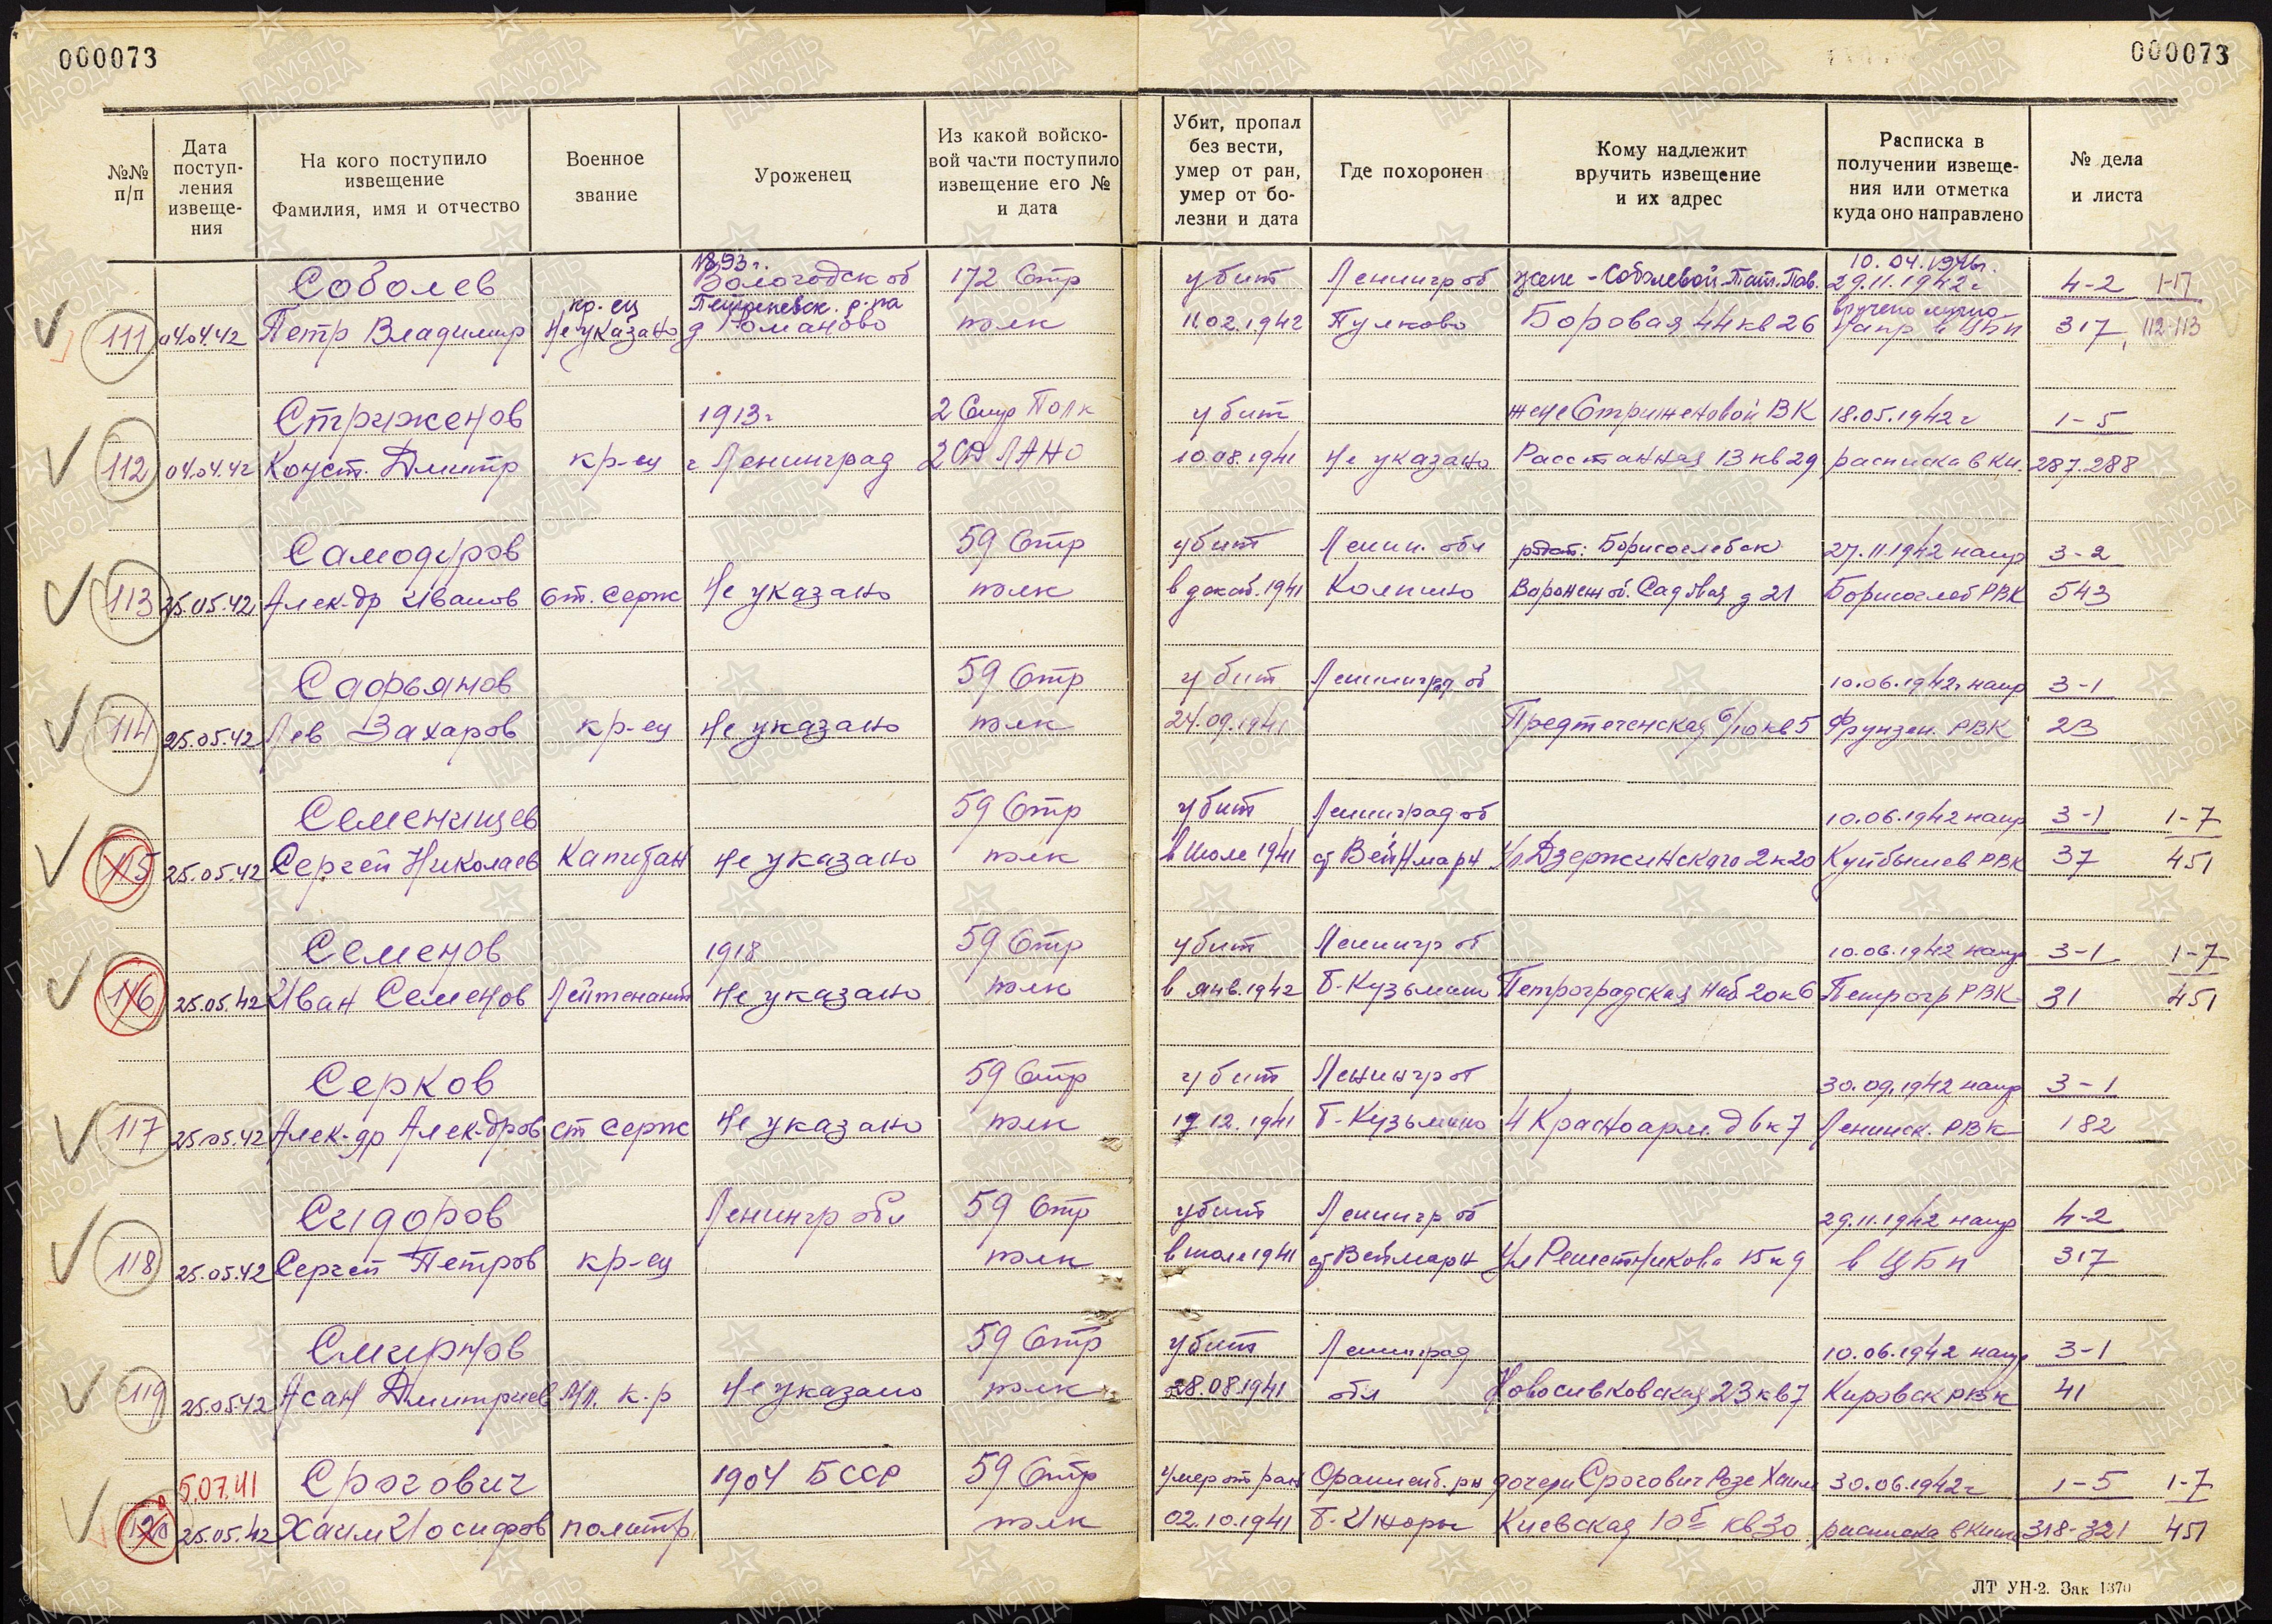 000073
000073
№№ п/п
Дата поступ-
ления
извеще-
ния
На кого поступило
извещение
Фамилия, имя и отчество
Военное
звание
Уроженец
Из какой войско-
вой части поступило
извещение его №
и дата
Убит, пропал
без вести,
умер от ран,
умер от бо-
лезни и дата
Где похоронен
Кому надлежит
вручить извещение
и их адрес
Расписка в
получении извеще-
ния или отметка
куда оно направлено
№ дела
и листа
1893 г. 10.04.1946г.
Соболев Вологодск об 172 Стр убит Ленингр об жене - Соболевой Тат. Пав. 29.11.1942г 4-2 1-17
кр. ец р-на вручено лично
111 04.04.42 Петр Владимир Не указано д Романово полк 11.02.1942 Пулково Боровая 44 кв 26 напр в ЦБп 317 112-113
Стриженов 1913г 2 Полк убит жене Стриженовой ВК 18.05.1942г 1-5
112 04.04.42 Конст. Дмитр кр-ец г Ленинград 2 СД ЛАНО 10.08.1941 Не указано Расстанная 13 кв 29 расписка в кн. 287.288
Самодуров 59 Стр убит Ленин. обл Борисоглебск 27.11.1942 напр 3-2
113 25.05.42 Алек-др Иванов Ст. Серж Не указано полк в декаб. 1941 Колпино Воронеж об. Садовая д 21 Борисоглеб РВК 543
Сафьянов 59 Стр убит Ленинград об 10.06.1942г напр 3-1
114 25.05.42 Лев Захаров кр-ец Не указано полк 24.09.1941 Предтеченская 6/10 кв 5 Фрунзен. РВК 23
Семенищев 59 Стр убит Ленинград об 10.06.1942 напр 3-1 1-7
115 25.05.42 Сергей Николаев Капитан Не указано полк в июле 1941 ст Веймарн Ул. Дзержинского 2 к 20 Куйбышев РВК 37 451
Семенов 1918 59 Стр убит Ленингр об 10.06.1942 напр 3-1 1-7
116 25.05.42 Иван Семенов Лейтенант Не указано полк в янв. 1942 Б-Кузьмино Петроградская наб 20 к 6 Петрогр РВК 31 451
Серков 59 Стр убит Ленингр об 30.09.1942 напр 3-1
117 25.05.42 Алек-др Алек-дров ст серж Не указано полк 19 12.1941 Б-Кузьмино 4 Красноарм. д 6 к 7 Ленинск. РВК 182
Сидоров Ленингр обл 59 Стр убит Ленингр об 29.11.1942 напр 4-2
118 25.05.42 Сергей Петров кр-ец полк в июле 1941 ст Веймарн Ул Решетникова 15 к 9 в ЦБп 317
Смирнов 59 Стр убит Ленинград 10.06.1942 напр 3-1
119 25.05.42 Асан Дмитриев Мл. к-р Не указано полк 28.08.1941 обл Новосивковская 23 кв 7 Кировск РВК 41
5.07.41 Срогович 1904 БССР 59 Стр умер от ран Ораниенб. рн дочери Срогович Розе Хаим 30.06.1942г 1-5 1-7
120 25.05.42 Хаим Иосифов политр полк 02.10.1941 Б-Ижоры Киевская 10 кв 30 расписка в книге 318-321 451
ЛТ УН-2. Зак 1370